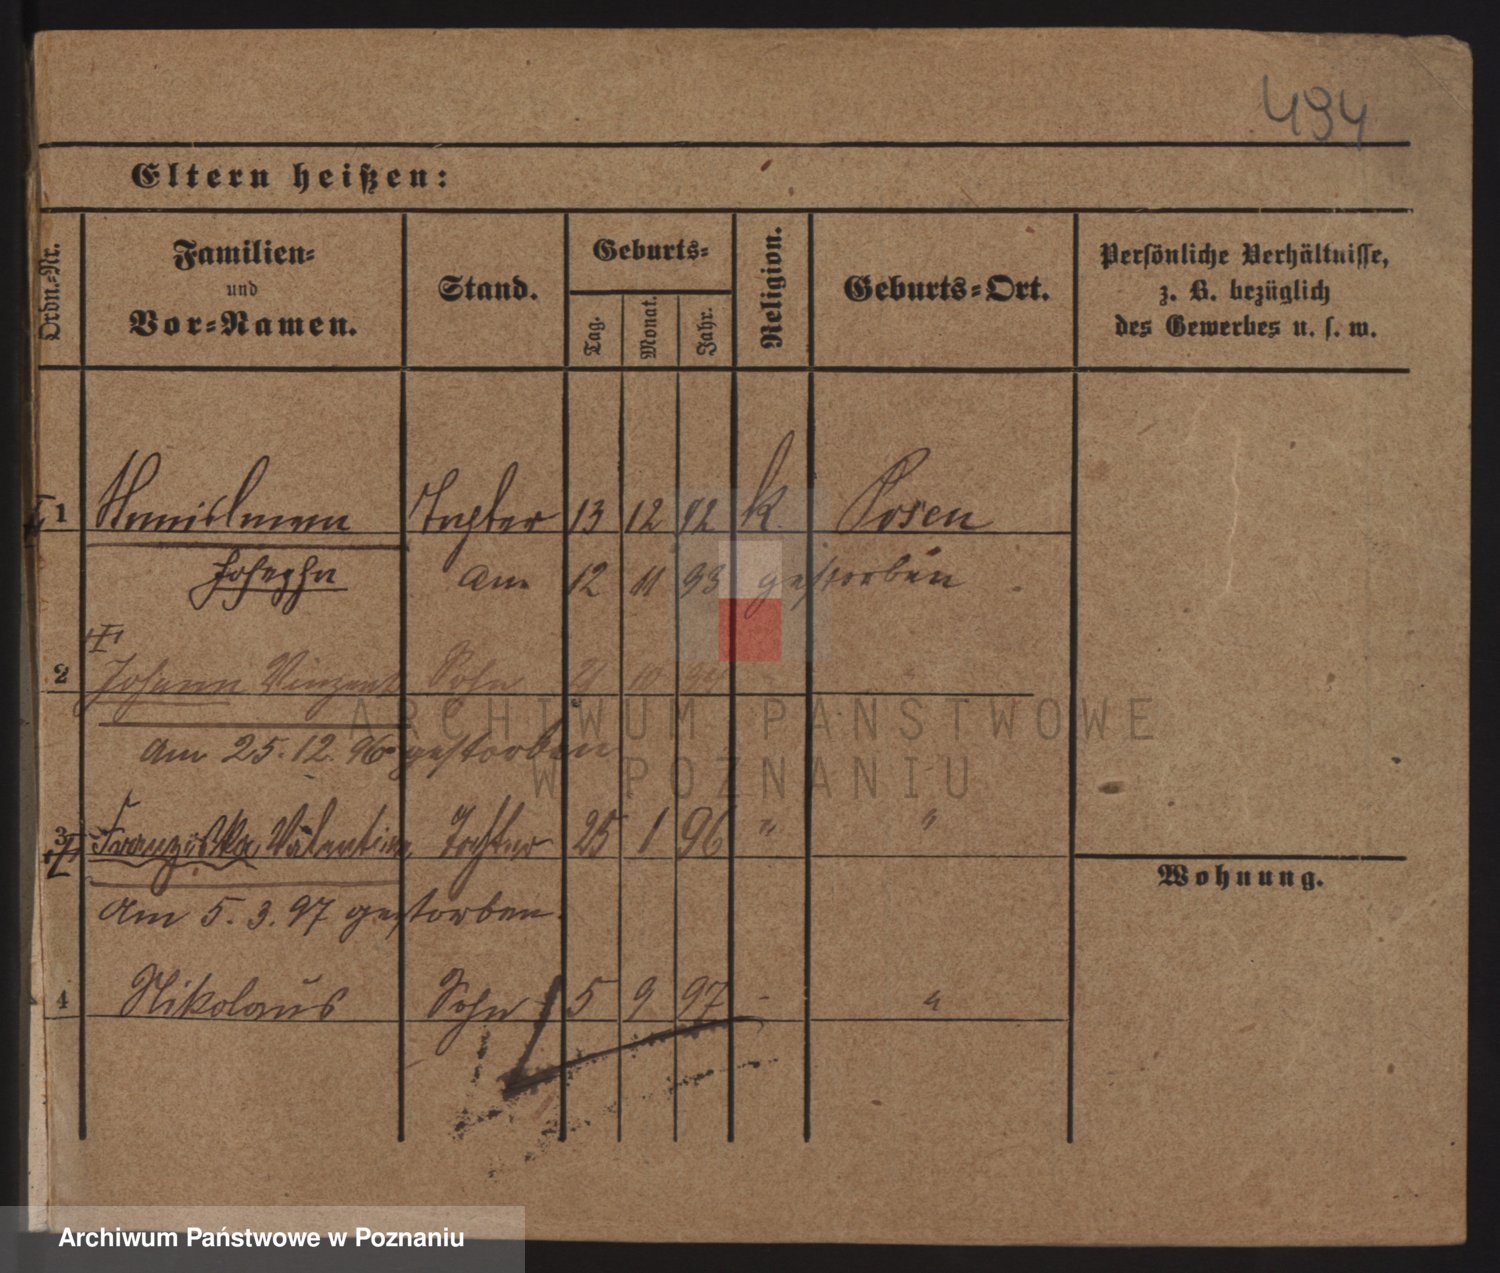 494
Eltern heißen:
Ordn.-Nr.
Familien-
und
Vor-Namen.
Stand.
Geburts-
Tag.
Monat.
Jahr.
Religion.
Geburts-Ort.
Persönliche Verhältnisse,
z. B. bezüglich
des Gewerbes u. s. w.
1 Tochter 13 12 92 k. Posen
Josepha am 12 11 93 gestorben
2 Johann Vinzent Sohn 10 94
am 25.12.96 gestorben
3 Franziska, Valentina Tochter 25 1 96 " "
Wohnung.
Am 5.3.97 gestorben.
4 Nikolaus Sohn 5 9 97 - "
ARCHIWUM PAŃSTWOWE
W POZNANIU
Archiwum Państwowe w Poznaniu